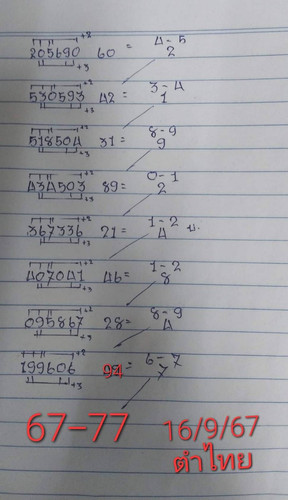 +2
4-5
205690 60 = 2
+3
+2
3-4
530593 42 = 1
+3
+2
8-9
518504 31 = 9
+3
+2
0-1
434503 89 = 2
+3
+2
1-2
367336 21 = 4 น.
+3
+2
1-2
407041 46 = 8
+3
+2
8-9
095867 28 = 4
+3
+2
6-7
199606 94 = 7
+3
67-77 16/9/67
ตำไทย